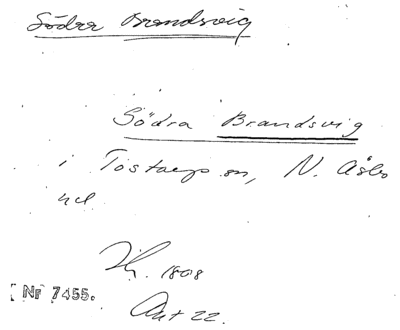 Södra Brandsvig
Södra Brandsvig
i Tostarps sn, N. Åsbo
hd
Hr. 1808
Akt 22.
Nr 7455.